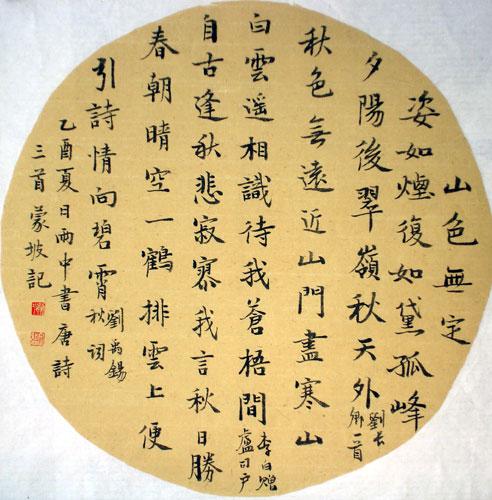 山色無定
姿如煙復如黛孤峰
夕陽後翠嶺秋天外
劉長
卿一首
秋色無遠近山門盡寒山
白雲遥相識待我蒼梧間
李白贈
盧司戶
自古逢秋悲寂寥我言秋日勝
春朝晴空一鶴排雲上便
引詩情向碧霄
劉禹錫
秋詞
乙酉夏日雨中書唐詩
三首蒙坡記